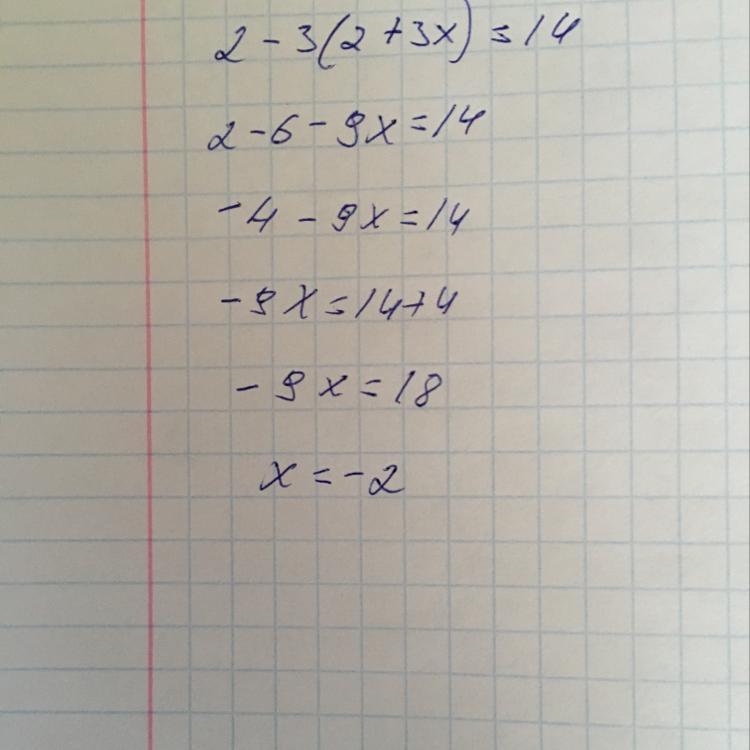 2 - 3(2 + 3x) = 14
2 - 6 - 9x = 14
-4 - 9x = 14
-9x = 14 + 4
-9x = 18
x = -2